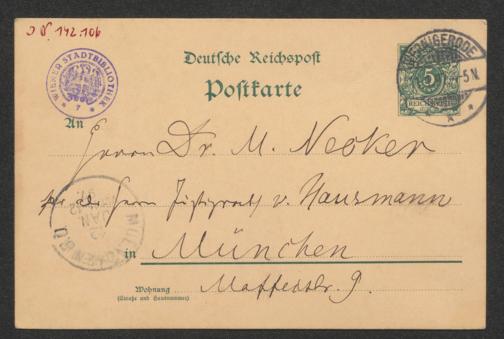 J.N. 142.106
WIENER STADTBIBLIOTHEK
Deutsche Reichspost
Postkarte
WERNIGERODE
5 N.
5
REICHSPOST
An
Herrn Dr. M. Necker
Herrn Justizrath v. Hausmann
MUENCHEN
12
JAN
in München
Wohnung Maffeistr. 9.
(Straße und Hausnummer)